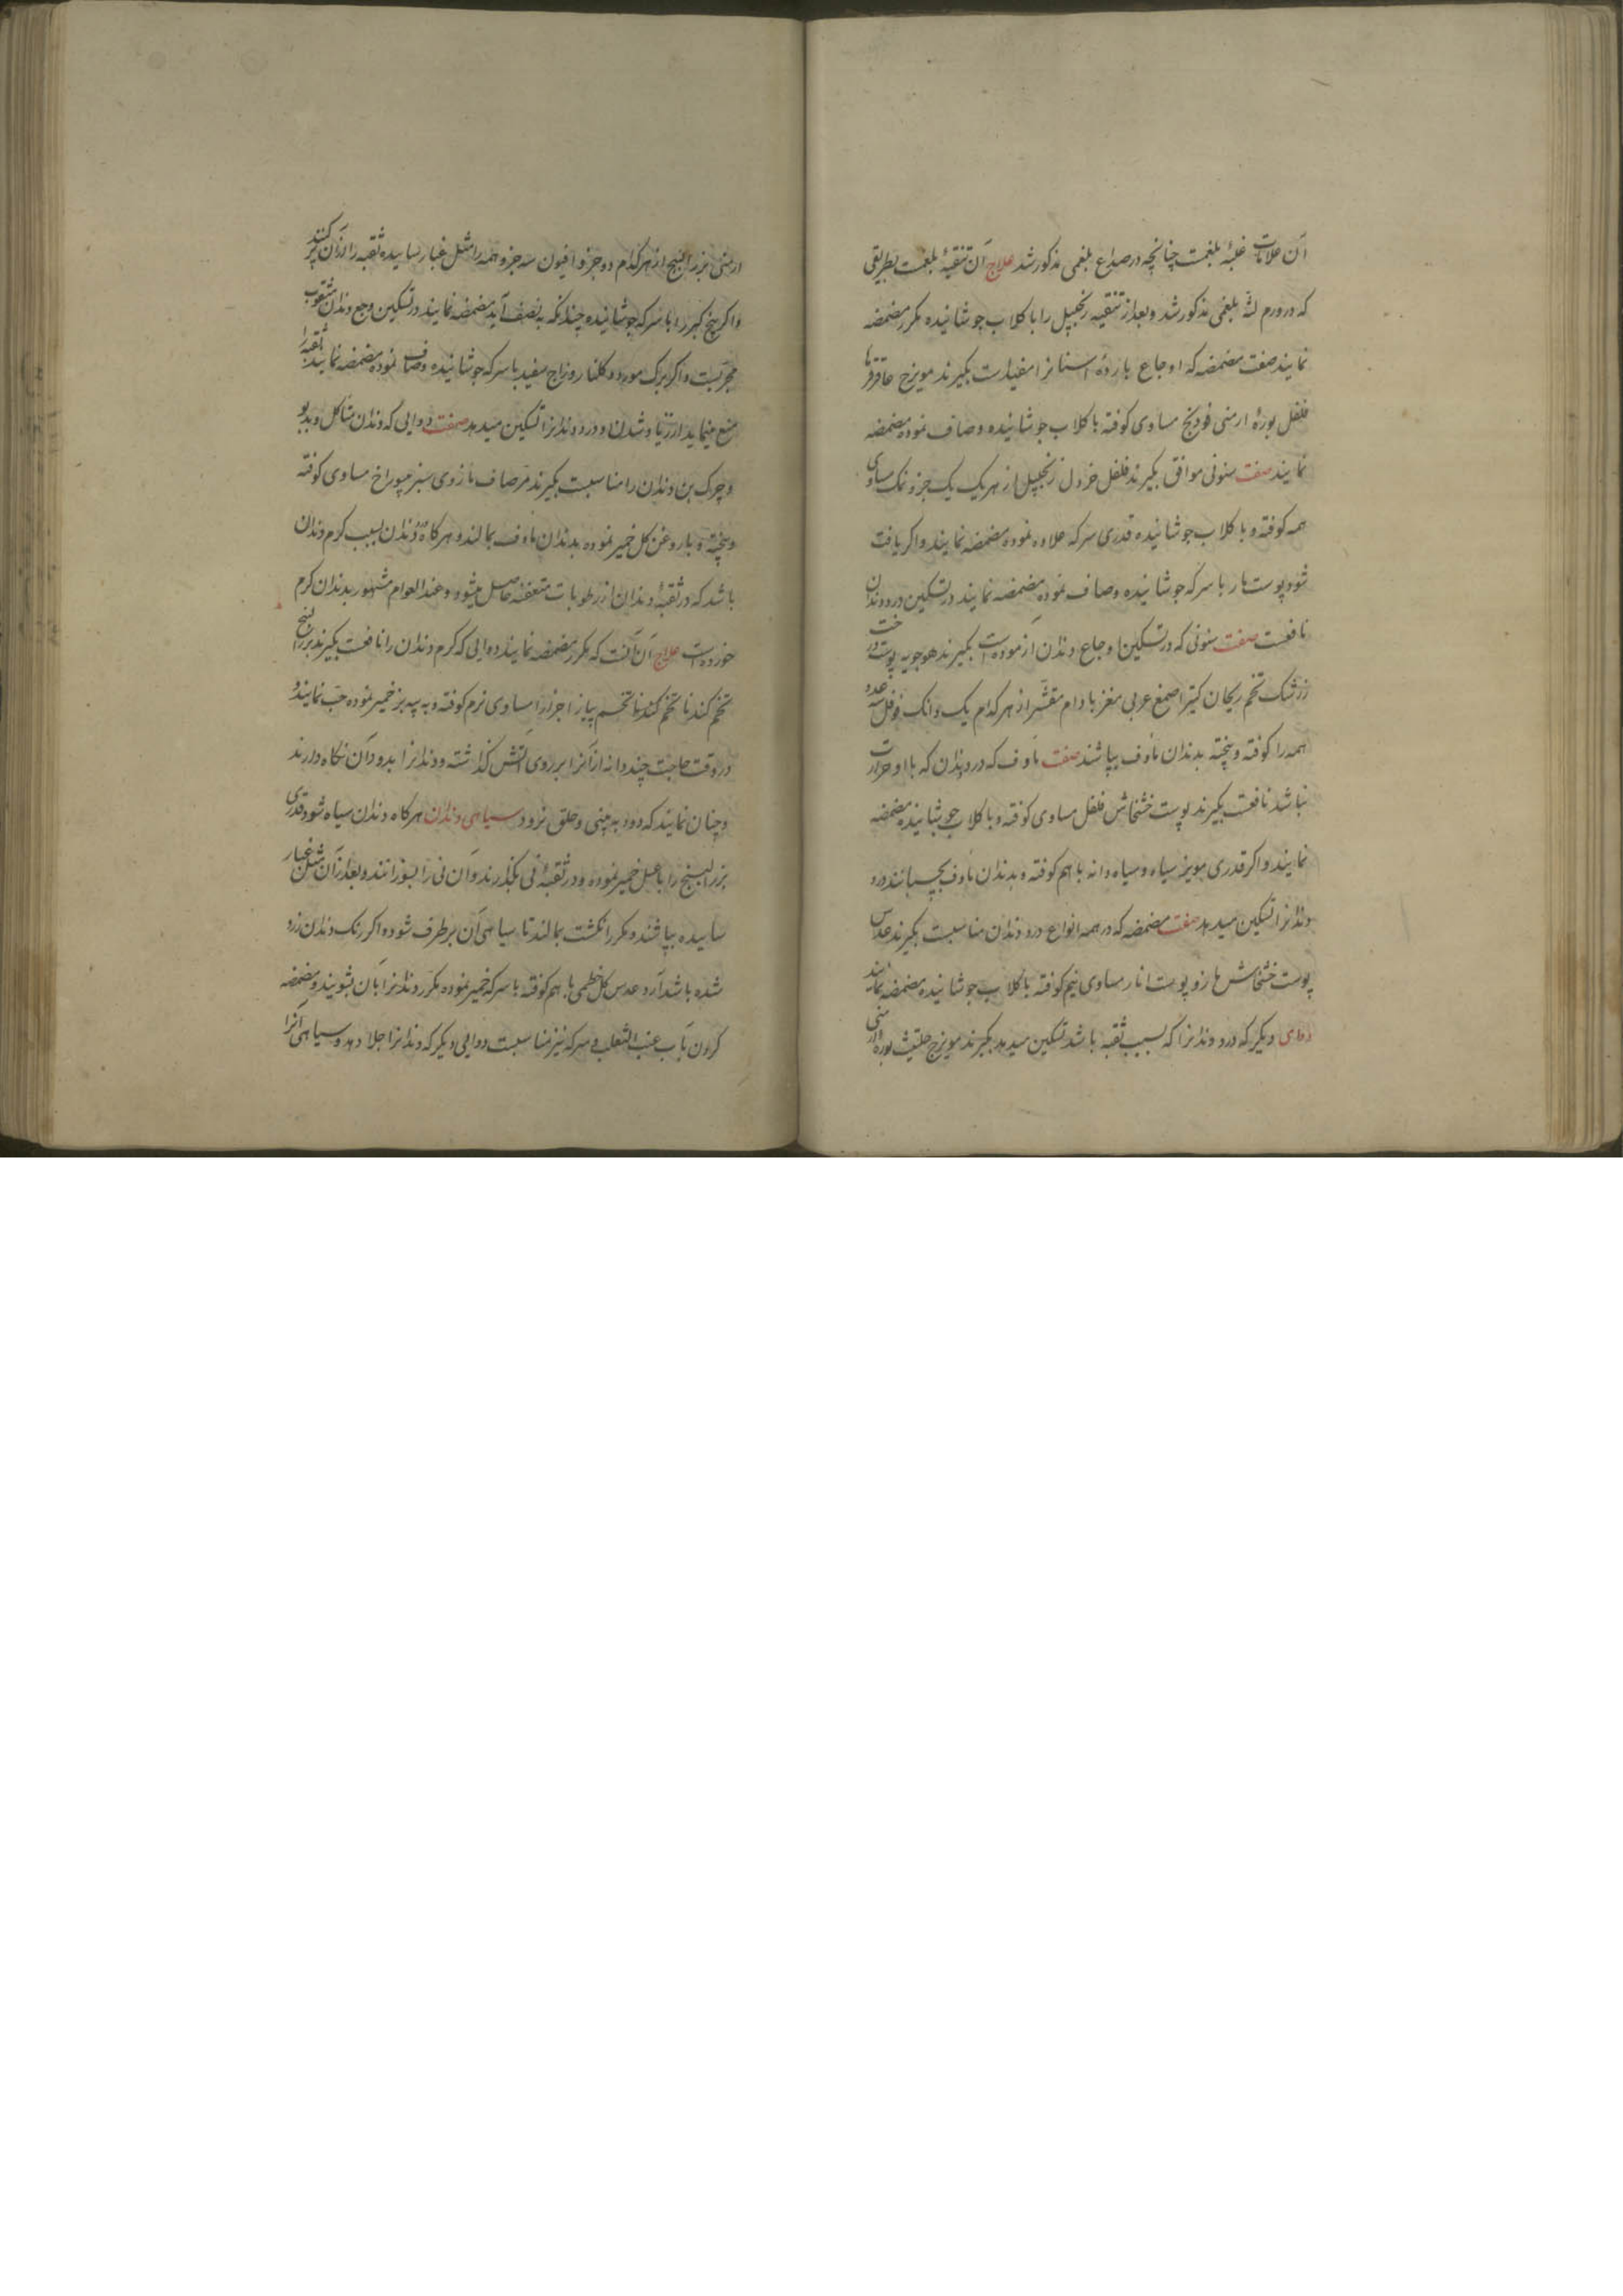 آن علامات غلبهٔ بلغمست چنانچه در صداع بلغمی مذکور شد علاج آن تنقیهٔ بلغمست بطریقی
که در ورم لثهٔ بلغمی مذکور شد و بعد از تنقیه زنجبیل را با کلاب جوشانیده مکرر مضمضه
نمایند صفت مضمضه که اوجاع باردهٔ اسنانرا مفیدست بکیرند مویزج عاقرقرحا
فلفل بورهٔ ارمنی فودنج مساوی کوفته با کلاب جوشانیده و صاف نموده مضمضه
نمایند صفت سنونی موافق بکیرند فلفل خردل زنجبیل از هر یک یک جزو نمک مساوی
همه کوفته و با کلاب جوشانیده قدری سرکه علاوه نموده مضمضه نمایند و اکر یافت
شود پوست مار با سرکه جوشانیده و صاف نموده مضمضه نمایند در تسکین درد دندان
نافعست صفت سنونی که در تسکین اوجاع دندان ازموده است بکیرند هوجویه پوست درخت
زرشک تخم ریحان کتیرا صمغ عربی مغز بادام مقشر از هر کدام یک دانک فوفل سه عدد
همه را کوفته و پخته بدندان ماوف بپاشند صفت ماوف که درد دندان که با او حرارت
نباشد نافعست بکیرند پوست خشخاش فلفل مساوی کوفته و با کلاب جوشانیده مضمضه
نمایند و اکر قدری مویز سیاه و سیاه دانه با هم کوفته و بدندان ماوف بچسبانند درد
دندانرا تسکین میدهد صفت مضمضه که در همه انواع درد دندان مناسبت بکیرند عدس
پوست خشخاش مازو پوست انار مساوی نیم کوفته با کلاب جوشانیده مضمضه نمایند
دوای دیکر که درد دندانرا که بسبب ثقبه باشد تسکین میدهد بکیرند مویزج حلتیت بورهٔ ارمنی
ارمنی بزر البنج از هر کدام دو جزو افیون سه جزو همه را مثل غبار ساییده ثقبه را از آن پر کنند
و اکر بیخ کبر را با سرکه جوشانیده چندانکه به نصف آید مضمضه نمایند در تسکین وجع دندان مثقوب
مجربست و اکر برک مورد و کلنار و زاج سفید با سرکه جوشانیده و صاف نموده مضمضه نمایند ثقبه را
منع مینماید از زیاد شدن و درد دندانرا تسکین میدهد صفت دوایی که دندان متآکل و بدبو
و چرک بن دندان را مناسبت بکیرند مر صاف مازوی سبز مساوی کوفته
و پخته و با روغن کل خمیر نموده بدندان ماوف بمالند و هر کاه درد دندان بسبب کرم دندان
باشد که در ثقبهٔ دندان از رطوبات متعفنه حاصل میشود و عند العوام مشهور بدندان کرم
خورده است علاج آن آنست که مکرر مضمضه نمایند دوایی که کرم دندان را نافعست بکیرند بزر البنج
تخم کندنا تخم پیاز اجزا را مساوی نرم کوفته و به پیه بز خمیر نموده حب نمایند و
در وقت حاجت چند دانه از آنرا بر روی آتش کذاشته و دندانرا بدود آن نکاه دارند
و چنان نمایند که دود به بینی و حلق نرود سیاهی دندان هر کاه دندان سیاه شود قدری
بزر البنج را با عسل خمیر نموده و در ثقبهٔ نی بکذارند و آن نی را بسوزانند و بعد از آن مثل غبار
ساییده بپاشند و مکرر انکشت بمالند تا سیاهی آن برطرف شود و اکر رنک دندان زرد
شده باشد آرد عدس کل خطمی با هم کوفته با سرکه خمیر نموده مکرر دندانرا بآن بشویند و مضمضه
کردن بآب عنب الثعلب و سرکه نیز مناسبت دوایی دیکر که دندانرا جلا دهد و سیاهی آنرا